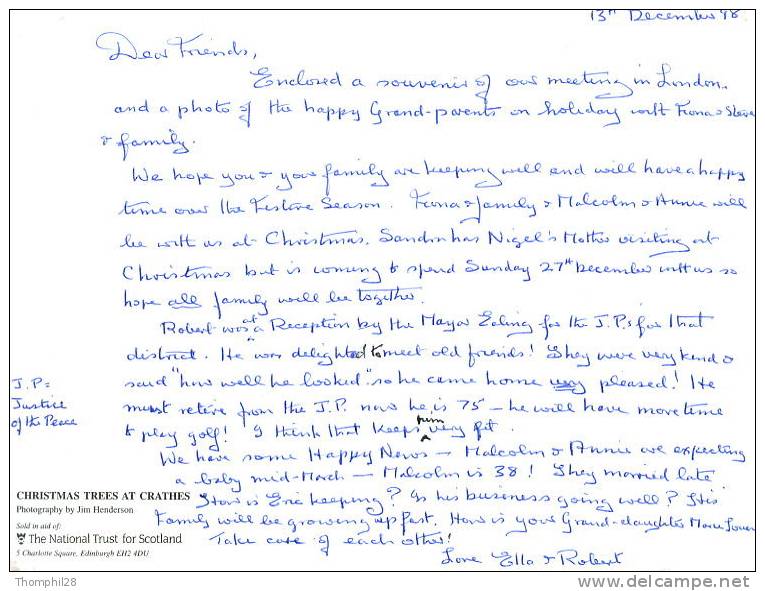 13th December 98
Dear Friends,
Enclosed a souvenir of our meeting in London.
and a photo of the happy Grand-parents on holiday with Fiona & Steve
& family.
We hope you & your family are keeping well and will have a happy
time over the Festive Season. Fiona & family & Malcolm & Annie will
be with us at Christmas. Sandra has Nigel's Mother visiting at
Christmas but is coming to spend Sunday 27th December with us so
hope all family will be together.
Robert was at a Reception by the Mayor Ealing for the J.P.s for that
district. He was delighted to meet old friends! They were very kind &
said "how well he looked" so he came home very pleased! He
must retire from the J.P. now he is 75 - he will have more time
to play golf! I think that keeps him very fit.
J.P. =
Justice
of the Peace
We have some Happy News - Malcolm & Annie are expecting
a baby mid-March - Malcolm is 38! They married late
How is Eric keeping? Is his business going well? His
Family will be growing up fast. How is your Grand-daughter Marie
Take care of each other!
Love Ella & Robert
CHRISTMAS TREES AT CRATHES
Photography by Jim Henderson
Sold in aid of:
The National Trust for Scotland
5 Charlotte Square, Edinburgh EH2 4DU
Thomphil28
delcampe.net